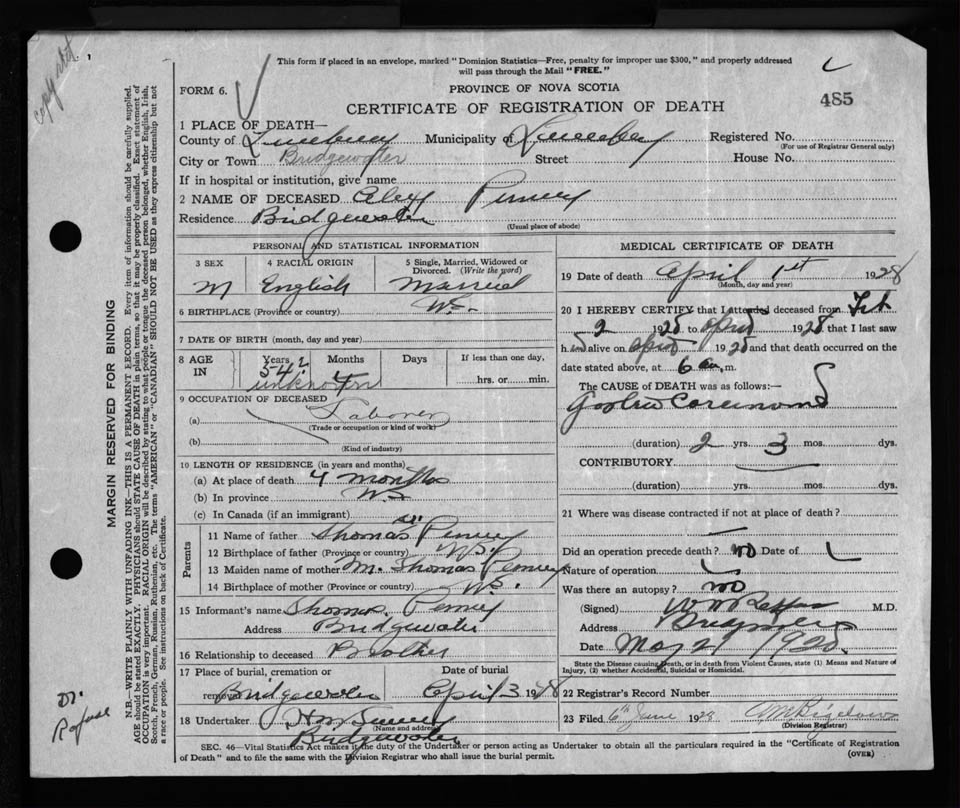 This form if placed in an envelope, marked "Dominion Statistics—Free, penalty for improper use $300," and properly addressed
will pass through the Mail "FREE."
FORM 6.
PROVINCE OF NOVA SCOTIA
485
CERTIFICATE OF REGISTRATION OF DEATH
1 PLACE OF DEATH—
County of Lunenburg Municipality of Lunenburg Registered No.
(For use of Registrar General only)
City or Town Bridgewater Street House No.
If in hospital or institution, give name
2 NAME OF DECEASED Alex Penney
Residence Bridgewater
(Usual place of abode)
PERSONAL AND STATISTICAL INFORMATION
3 SEX 4 RACIAL ORIGIN 5 Single, Married, Widowed or Divorced. (Write the word)
M English Married
6 BIRTHPLACE (Province or country) N.S.
7 DATE OF BIRTH (month, day and year)
8 AGE IN Years Months Days If less than one day,
54 ?
unknown
hrs. or min.
9 OCCUPATION OF DECEASED
(a) Laborer
(Trade or occupation or kind of work)
(b)
(Kind of industry)
10 LENGTH OF RESIDENCE (in years and months)
(a) At place of death 4 months
(b) In province NS
(c) In Canada (if an immigrant)
Parents
11 Name of father Thomas Penney
12 Birthplace of father (Province or country) N.S.
13 Maiden name of mother M. Thomas Penney
14 Birthplace of mother (Province or country) N.S.
15 Informant's name Thomas Penney
Address Bridgewater
16 Relationship to deceased Brother
17 Place of burial, cremation or removal Date of burial
Bridgewater April 3 1928
18 Undertaker
(Name and address)
Bridgewater
MEDICAL CERTIFICATE OF DEATH
19 Date of death April 1st 1928
(Month, day and year)
20 I HEREBY CERTIFY that I attended deceased from Feb
2 1928 to April 1928 that I last saw
him alive on April 1928 and that death occurred on the
date stated above, at 6 am.
The CAUSE OF DEATH was as follows:—
Gastric Carcinoma
(duration) 2 yrs. 3 mos. dys.
CONTRIBUTORY
(duration) yrs. mos. dys.
21 Where was disease contracted if not at place of death?
Did an operation precede death? no Date of
Nature of operation
Was there an autopsy? no
(Signed) M.D.
Address Bridgewater
Date May 21 1928
State the Disease causing Death, or in death from Violent Causes, state (1) Means and Nature of Injury, (2) whether Accidental, Suicidal or Homicidal.
22 Registrar's Record Number
23 Filed 6th June 1928
(Division Registrar)
SEC. 46—Vital Statistics Act makes it the duty of the Undertaker or person acting as Undertaker to obtain all the particulars required in the "Certificate of Registration
of Death" and to file the same with the Division Registrar who shall issue the burial permit.
(OVER)
MARGIN RESERVED FOR BINDING
N.B.—WRITE PLAINLY WITH UNFADING INK—THIS IS A PERMANENT RECORD. Every item of information should be carefully supplied.
AGE should be stated EXACTLY. PHYSICIANS should STATE CAUSE OF DEATH in plain terms, so that it may be properly classified. Exact statement of
OCCUPATION is very important. RACIAL ORIGIN will be described by stating to what people or tongue the deceased person belonged, whether English, Irish,
Scotch, French, German, Russian, Ruthenian, etc. The terms "AMERICAN" or "CANADIAN" SHOULD NOT BE USED as they express citizenship but not
a race or people. See instructions on back of Certificate.